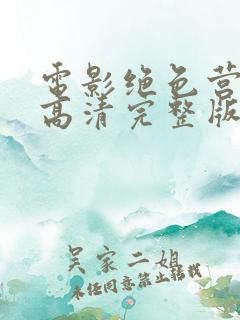 电影绝色营
高清完整版
吴家二姐
未任同意禁止转载